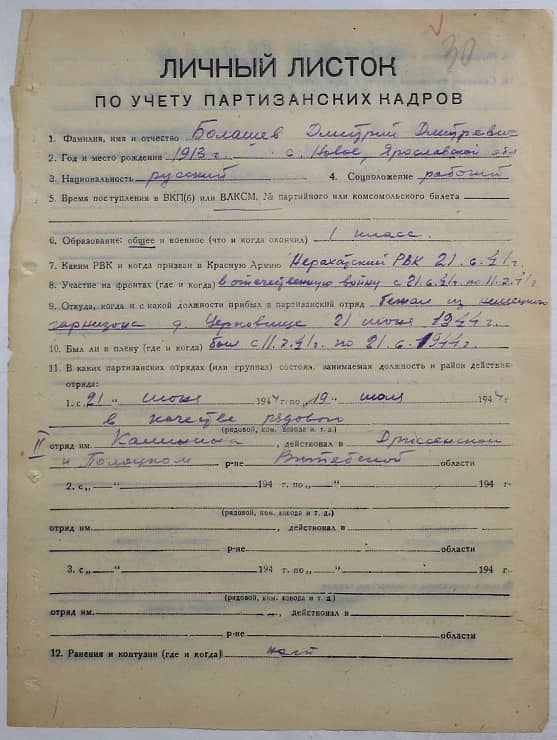 30
ЛИЧНЫЙ ЛИСТОК
ПО УЧЕТУ ПАРТИЗАНСКИХ КАДРОВ
1. Фамилия, имя и отчество Болашев Дмитрий Дмитревич
2. Год и место рождения 1913 г. с. Новое, Ярославской обл
3. Национальность русский 4. Соцположение рабочий
5. Время поступления в ВКП(б) или ВЛКСМ, № партийного или комсомольского билета
6. Образование: общее и военное (что и когда окончил) 1 класс.
7. Каким РВК и когда призван в Красную Армию Нерехатский РВК 21.6.41г.
8. Участие на фронтах (где и когда) в отечественную войну с 21.6.41г. по 11.7.41г
9. Откуда, когда и с какой должности прибыл в партизанский отряд бежал из немецкого
гарнизона д. Черповище 21 июня 1944г.
10. Был ли в плену (где и когда) был с 11.7.41г. по 21.6.1944г.
11. В каких партизанских отрядах (или группах) состоял, занимаемая должность и район действия
отряда:
1. с „21“ июня 1944 г. по „19“ июля 1944 г.
в качестве рядовой
(рядовой, ком. взвода и т. д.)
II отряд им. Калинина, действовал в Дриссенском
и Полоцком р-не Витебской области
2. с „ “ 194 г. по „ “ 194 г.
(рядовой, ком. взвода и т. д.)
отряд им. , действовал в
р-не области
3. с „ “ 194 г. по „ “ 194 г.
(рядовой, ком. взвода и т. д.)
отряд им. , действовал в
р-не области
12. Ранения и контузии (где и когда) нет